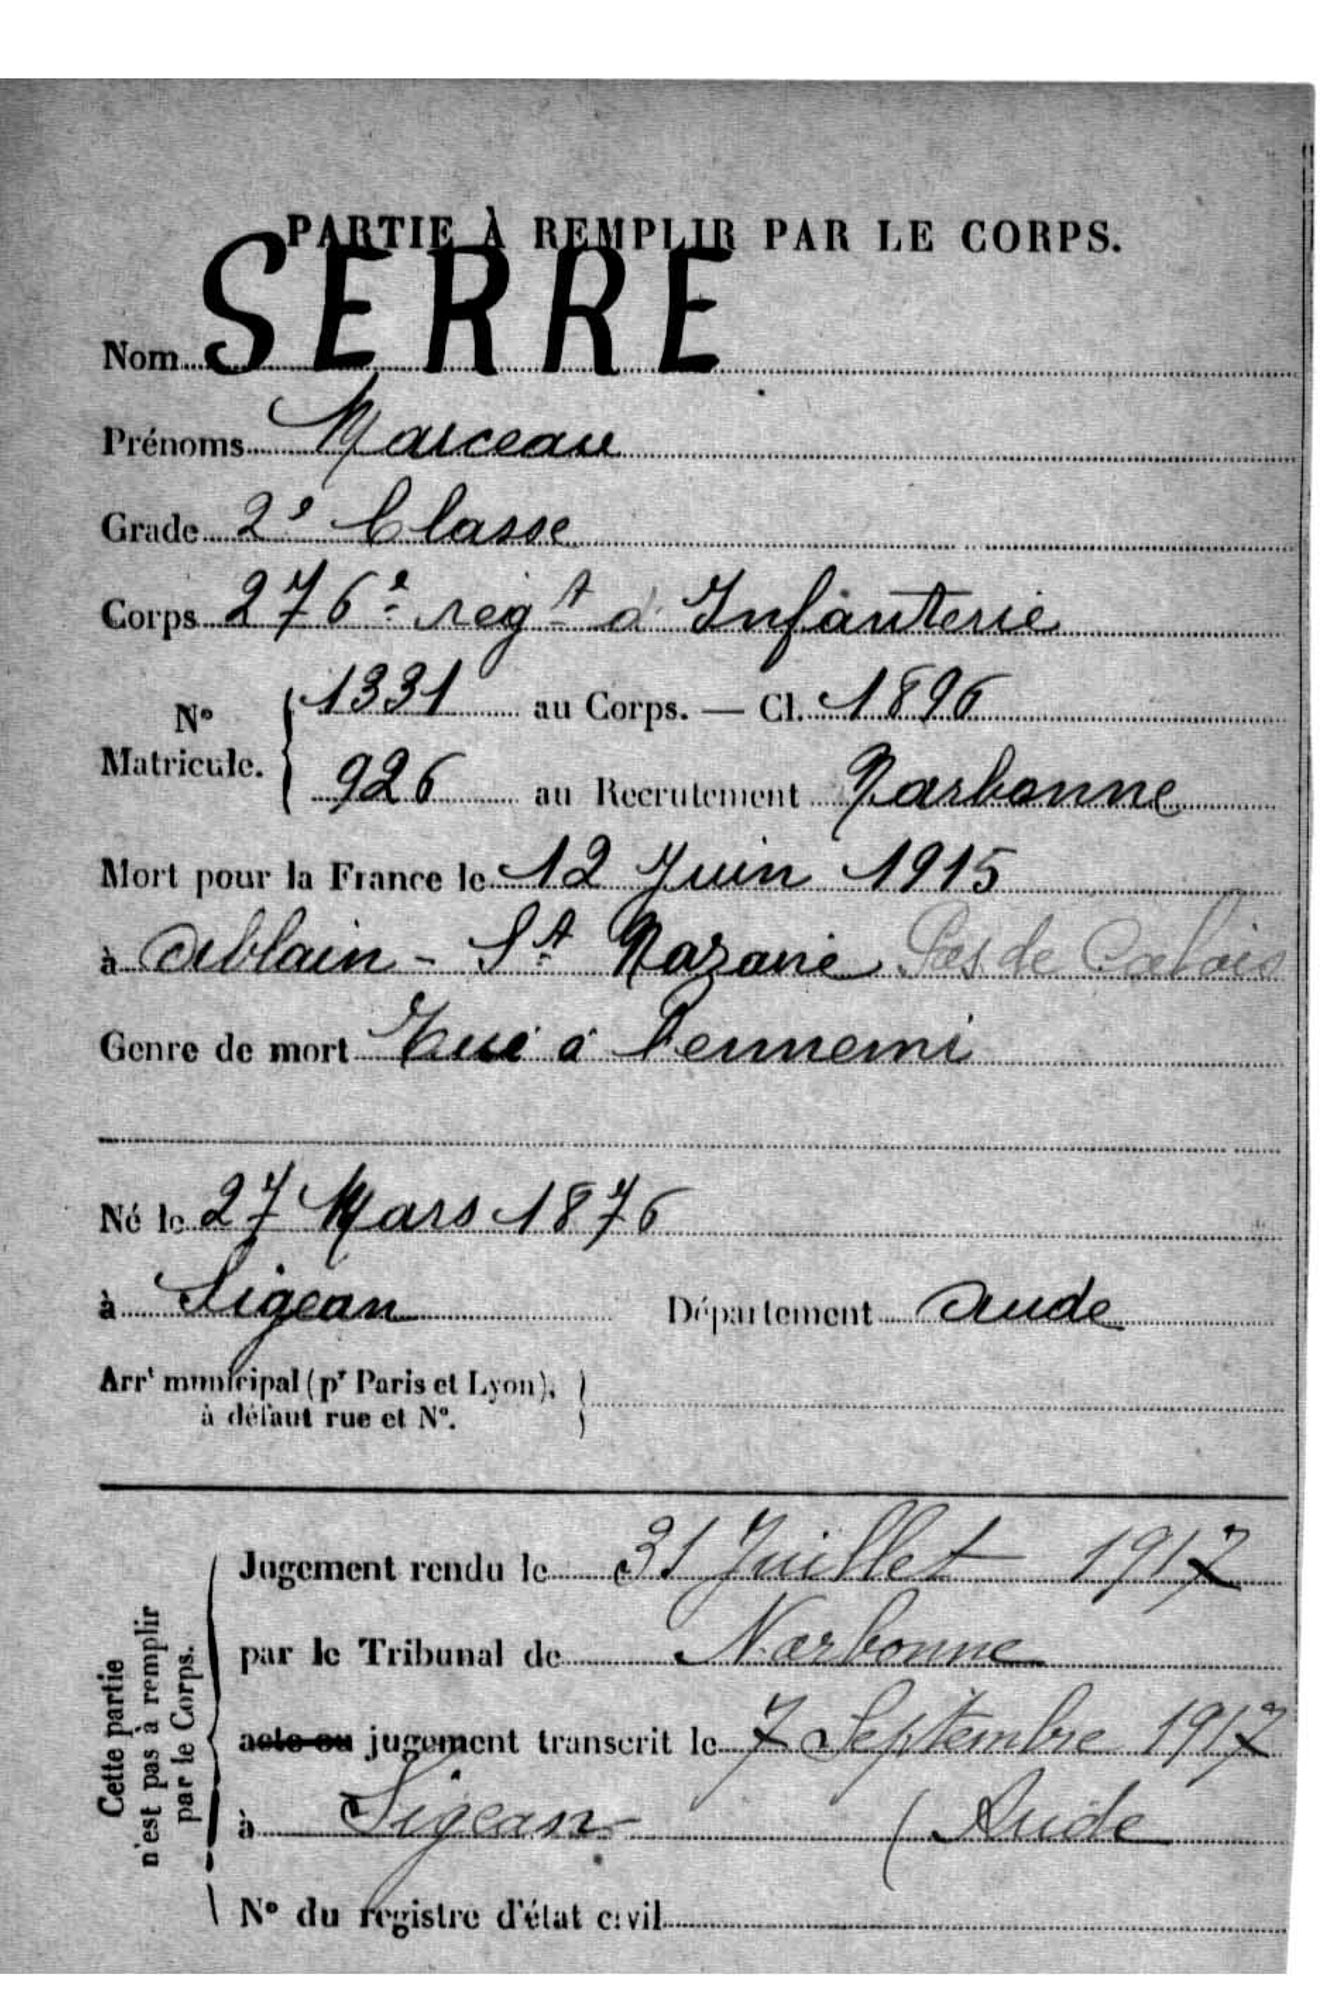 PARTIE À REMPLIR PAR LE CORPS.
Nom SERRE
Prénoms Marceau
Grade 2e Classe
Corps 276e regt d'Infanterie
No Matricule. 1331 au Corps. — Cl. 1896
926 au Recrutement Narbonne
Mort pour la France le 12 Juin 1915
à Ablain - St Nazaire Pas de Calais
Genre de mort Tué à l'ennemi
Né le 27 Mars 1876
à Sigean Département Aude
Arrt municipal (pr Paris et Lyon),
à défaut rue et No.
Cette partie
n'est pas à remplir
par le Corps.
Jugement rendu le 31 Juillet 1917
par le Tribunal de Narbonne
acte ou jugement transcrit le 7 Septembre 1917
à Sigean (Aude
No du registre d'état civil